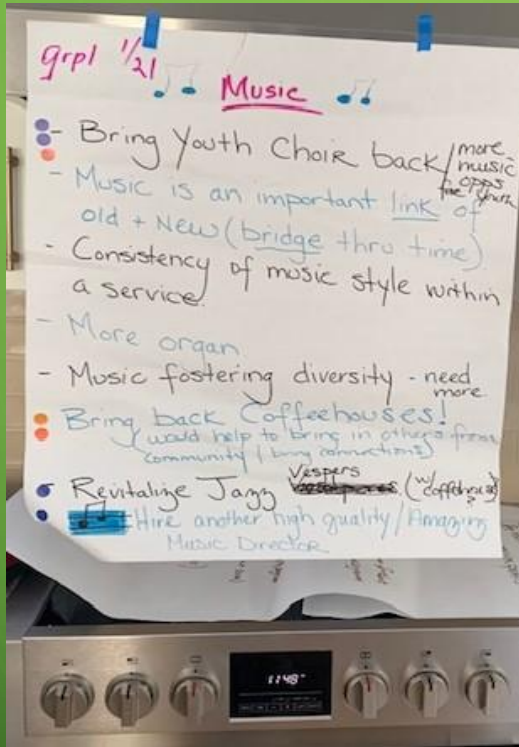 grp1 1/21
Music
- Bring Youth Choir back / more
music
opps
for youth
- Music is an important link of
old + New (bridge thru time)
- Consistency of music style within
a service.
- More organ
- Music fostering diversity - need
more
Bring back Coffeehouses!
(would help to bring in others from
community / bring connections)
Vespers
Revitalize Jazz (w/ coffeehouse)
Hire another high quality / Amazing
Music Director
1148